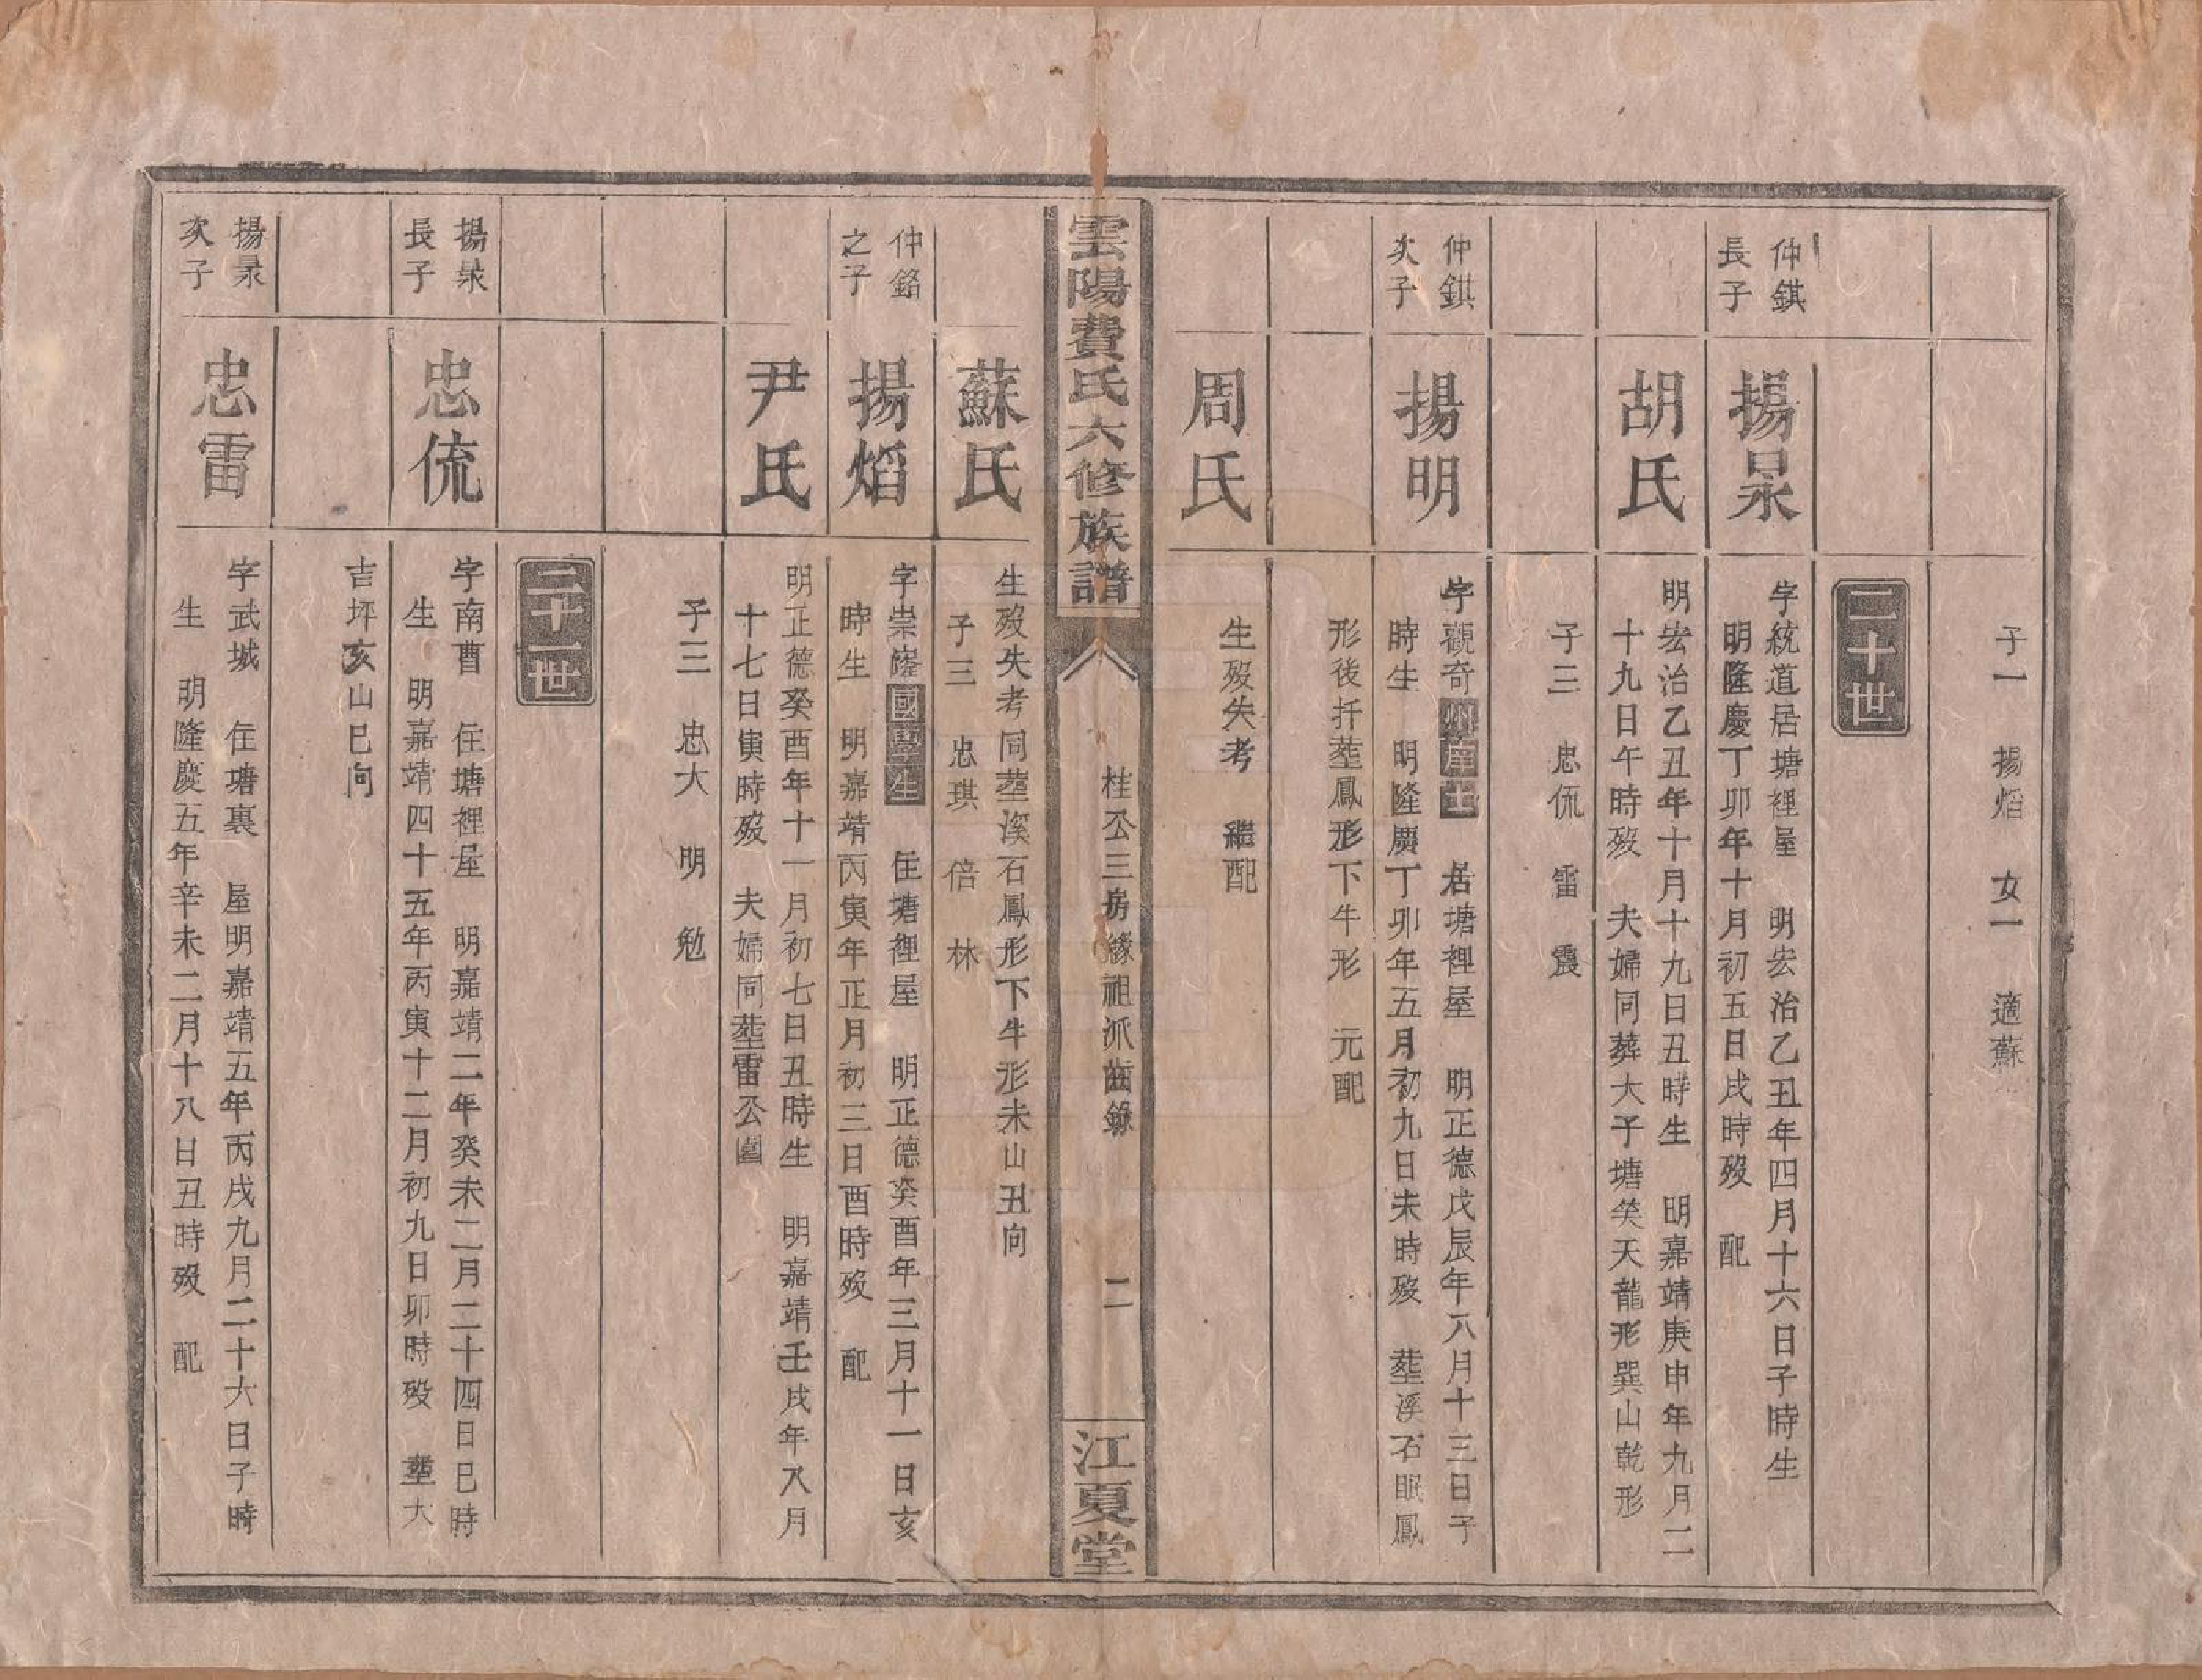 子一　揚熖　女一　適蘇
二十世
仲鉷
長子
揚杘
字統道居塘裡屋　明宏治乙丑年四月十六日子時生
明隆慶丁卯年十月初五日戌時殁　配
胡氏
明宏治乙丑年十月十九日丑時生　明嘉靖庚申年九月二
十九日午時殁　夫婦同葬大予塘笑天龍形巽山乾形
子三　忠侃　雷　震
仲鉷
次子
揚明
字觀奇州庠生　居塘裡屋　明正德戊辰年八月十三日子
時生　明隆慶丁卯年五月初九日未時殁　塟溪石眠鳳
形後扦塟鳳形下牛形　元配
周氏
生殁失考　繼配
雲陽費氏六修族譜
桂公三房緣祖派齒錄
二
江夏堂
蘇氏
生殁失考同塟溪石鳳形下牛形未山丑向
子三　忠琪　倍　林
仲銘
之子
揚熖
字崇㠕國學生　住塘裡屋　明正德癸酉年三月十一日亥
時生　明嘉靖丙寅年正月初三日酉時殁　配
尹氏
明正德癸酉年十一月初七日丑時生　明嘉靖壬戌年八月
十七日寅時殁　夫婦同塟雷公園
子三　忠大　明　勉
二十一世
揚杘
長子
忠侃
字南曹　住塘裡屋　明嘉靖二年癸未二月二十四日巳時
生　明嘉靖四十五年丙寅十二月初九日卯時殁　塟大
吉坪亥山巳向
揚杘
次子
忠雷
字武城　住塘裏　屋明嘉靖五年丙戌九月二十六日子時
生　明隆慶五年辛未二月十八日丑時殁　配